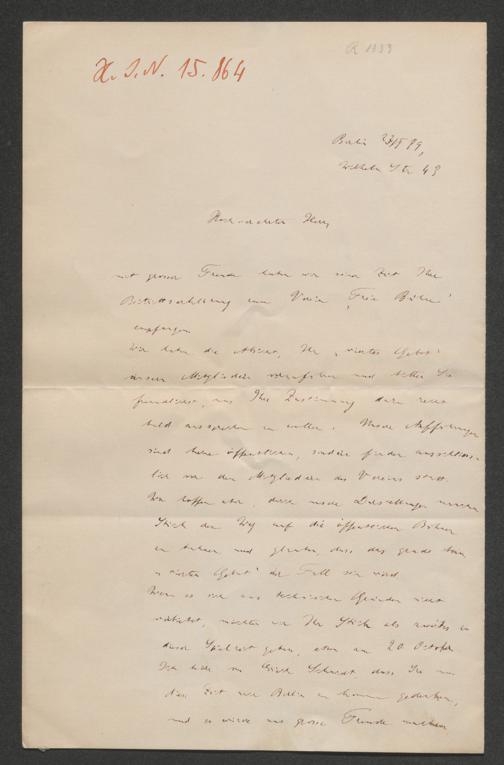 R 1333
H. I. N. 15.864
Berlin 23/ 89,
Wilhelm Str 49
Hochverehrter Herr,
mit grosser Freude haben wir seiner Zeit Ihre
Beitrittserklärung zum Verein "Freie Bühne"
empfangen
Wir haben die Absicht, Ihr "viertes Gebot"
unseren Mitgliedern vorzuführen und bitten Sie
freundlichst, uns Ihre Zustimmung dazu recht
bald aussprechen zu wollen. Unsere Aufführungen
sind keine öffentlichen, sondern finden ausschliess-
lich vor den Mitgliedern des Vereins statt.
Wir hoffen aber, dass unsere Darstellungen manchem
Stück den Weg auf die öffentlichen Bühnen
zu bahnen und glauben, dass das gerade beim
"vierten Gebot" der Fall sein wird.
Wenn es sich aus technischen Gründen nicht
verbietet, möchten wir Ihr Stück als zweites in
dieser Spielzeit geben, etwa am 20. October
Ich höre von Erich Schmidt, dass Sie um
diese Zeit nach Berlin zu kommen gedenken,
und es würde uns grosse Freude machen